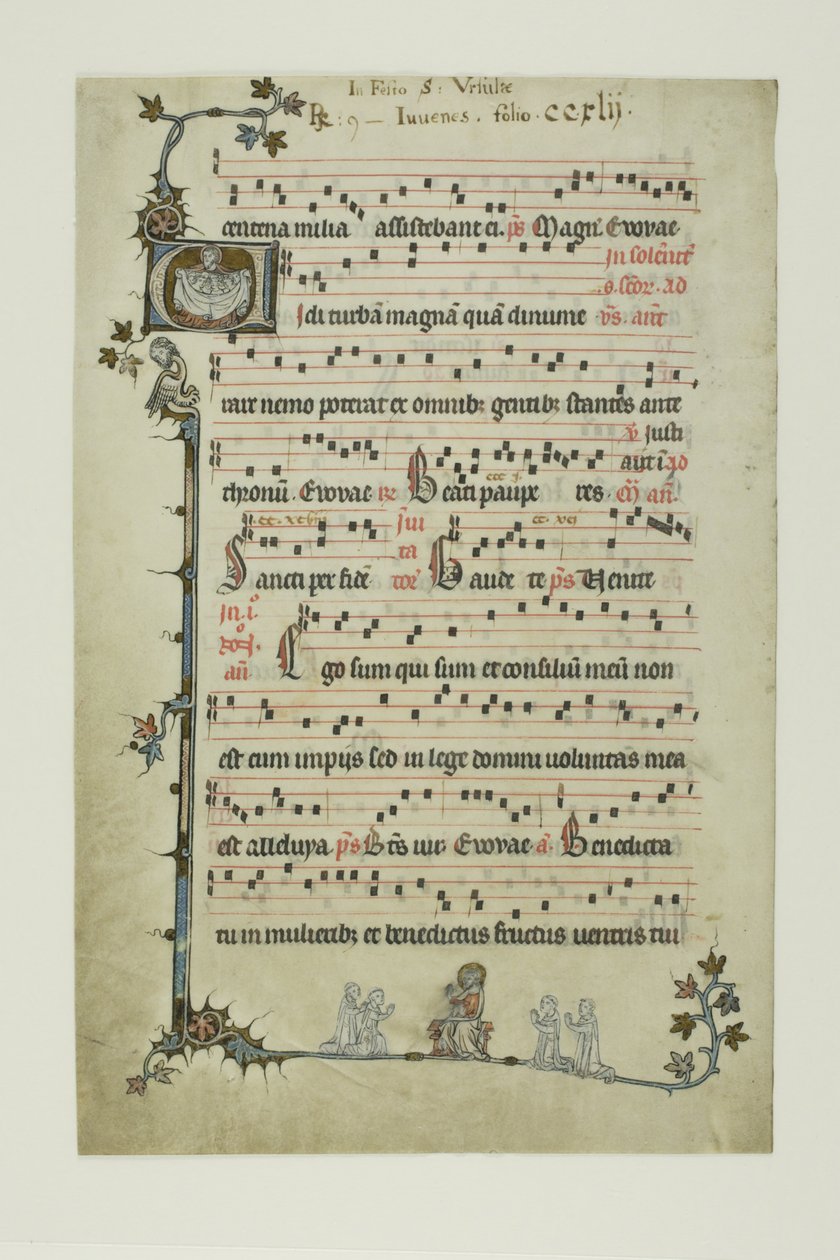 In Festo S: Ursulæ
℟: 9 — Iuuenes. folio. ccxlij.
centena milia assistebant ei. p̄s Magn̄ Evovae
In solēnit̄
o. sc̄or. ad
Vidi turbā magnā quā dinume v̄s. ant̄
rare nemo poterat ex omnib; gentib; stantes ante
℣ Justi
aūt ī ad
thronū. Evovae ℟ Beati paupe res.
cc. xcj
Sancti per fidē Jui ta tor̄ Gaude te p̄s Venite
In. i°
an̄
Ego sum qui sum et consiliū meū non
est cum impijs sed in lege domini uoluntas mea
est alleluya p̄s Bt̄s uir. Evovae a. Benedicta
tu in mulierib; et benedictus fructus uentris tui